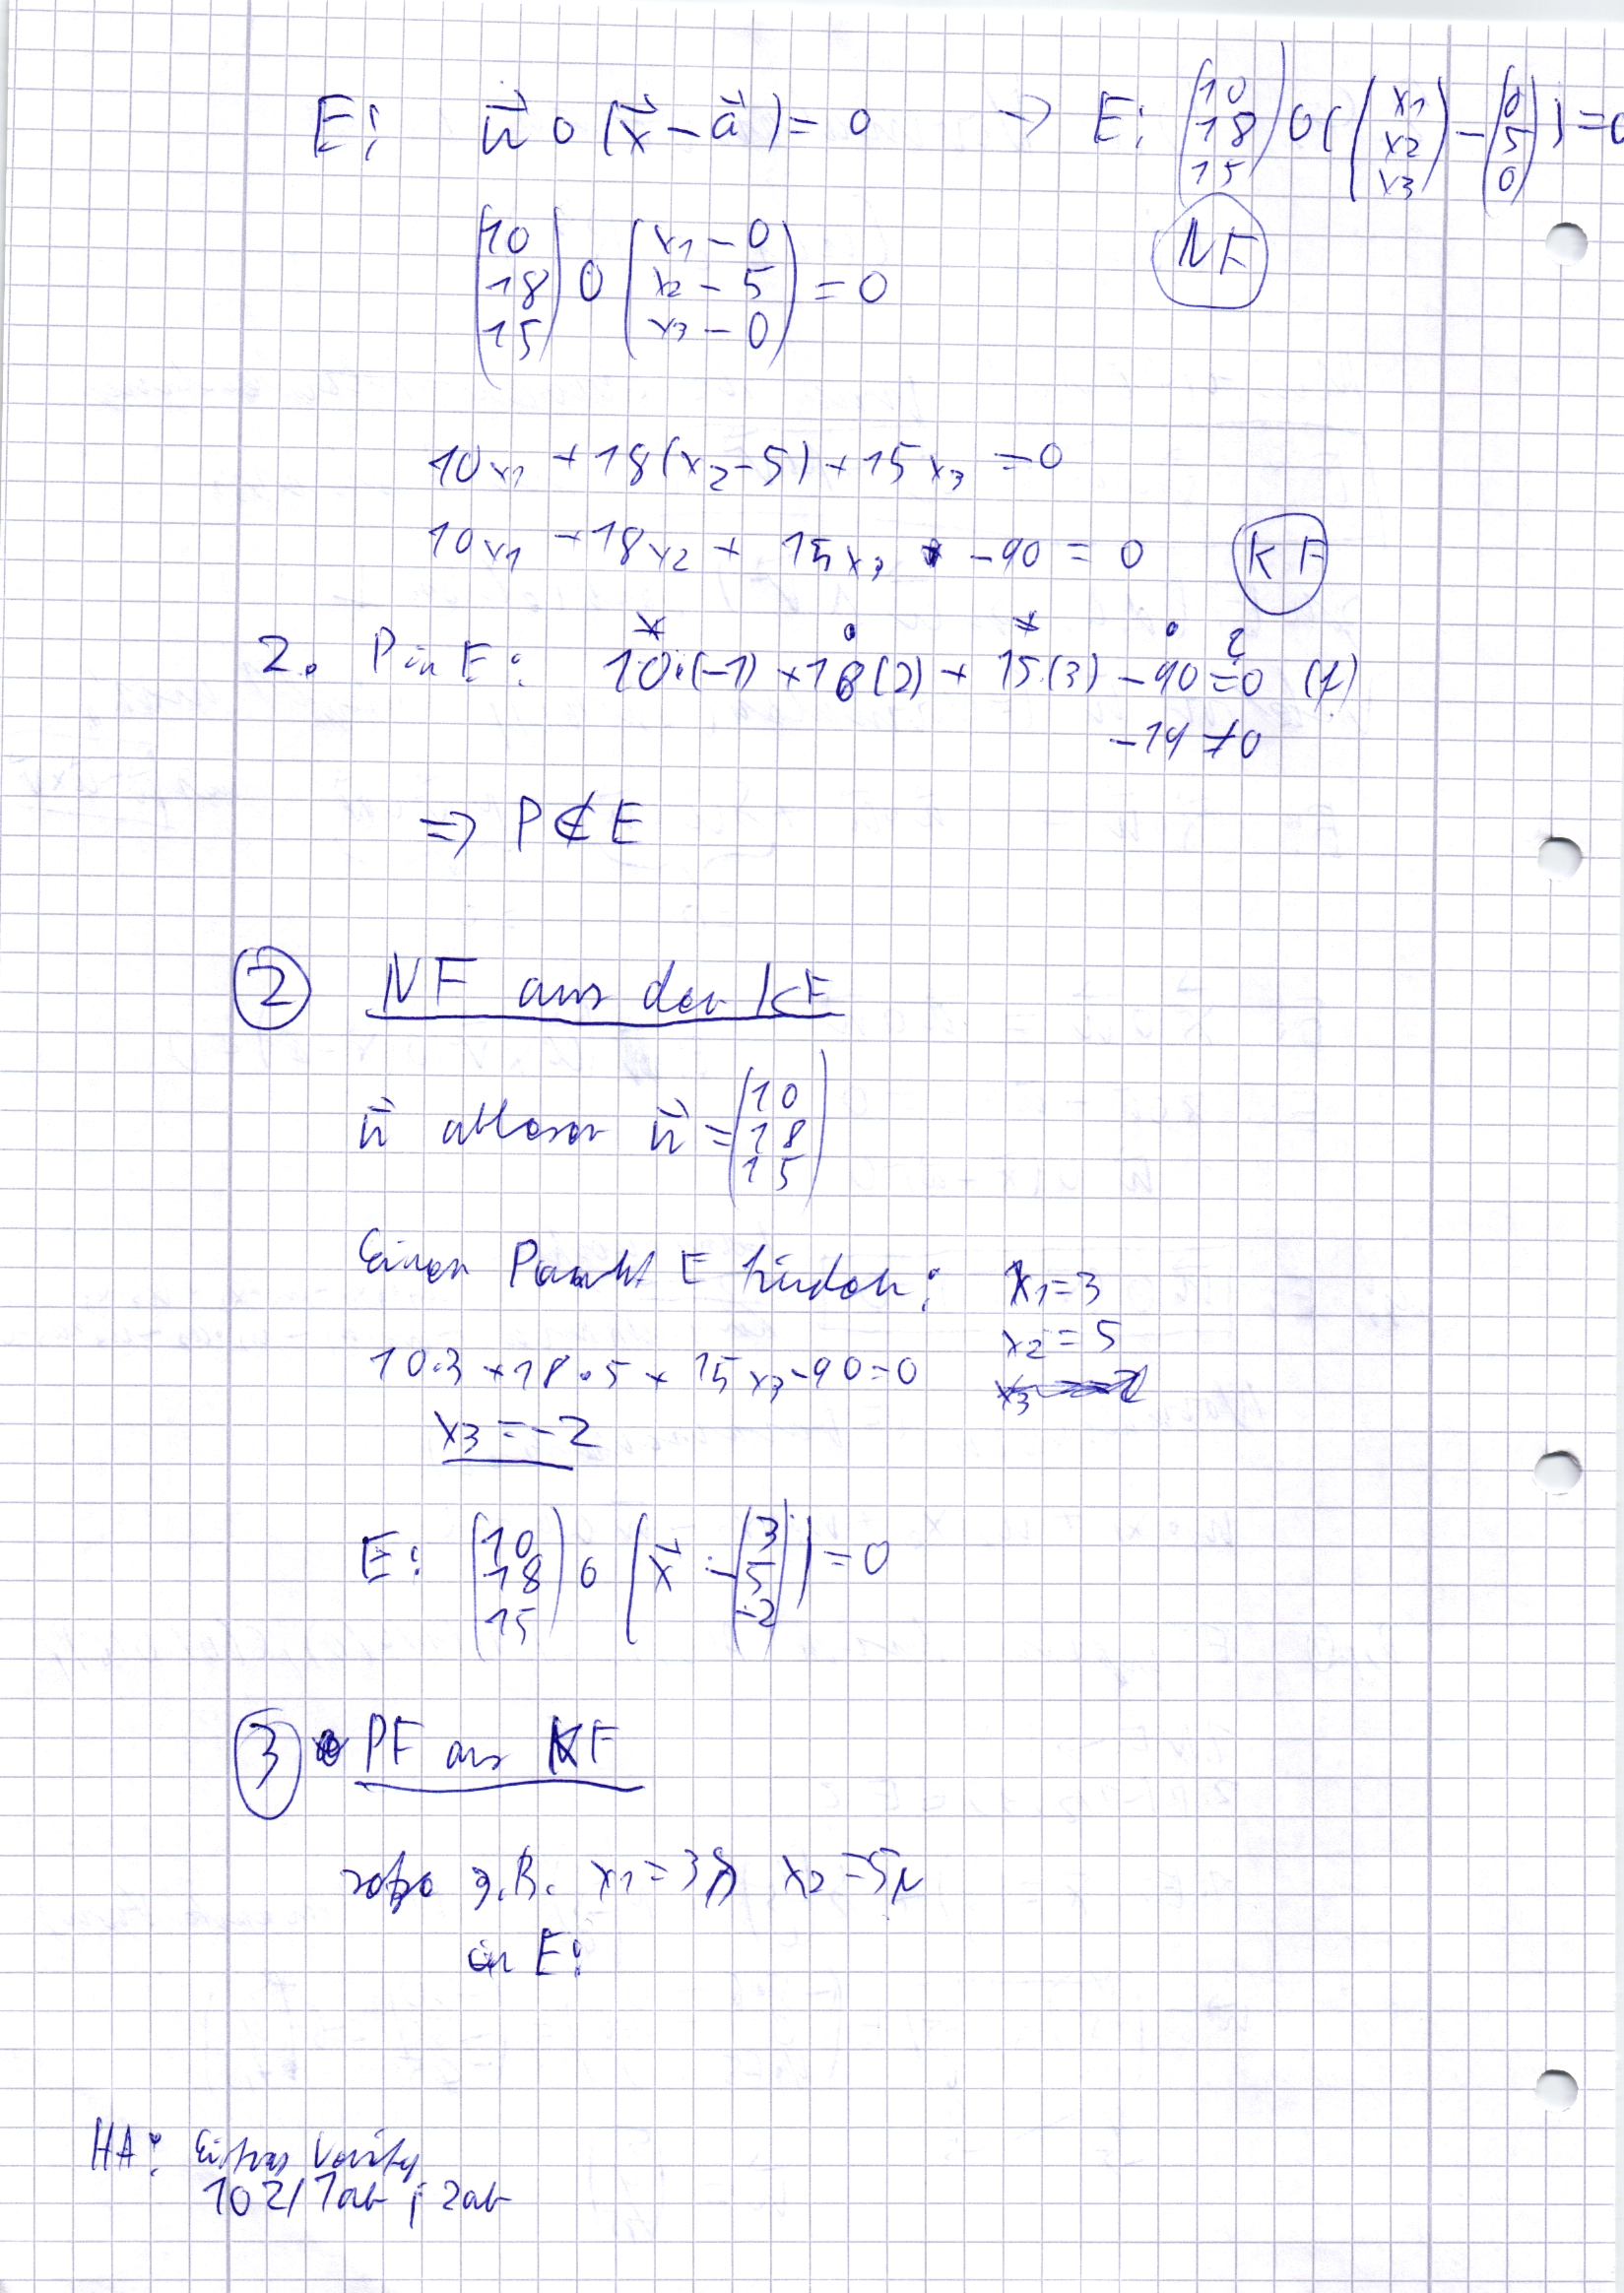 E: n⃗ ∘ (x⃗ − a⃗) = 0 → E: (10 18 15) ∘ ((x1 x2 x3) − (0 5 0)) = 0
NF
(10 18 15) ∘ (x1 − 0 x2 − 5 x3 − 0) = 0
10x1 + 18(x2 − 5) + 15x3 = 0
10x1 + 18x2 + 15x3 − 90 = 0 KF
2. P in E: 10·(−1) + 18(2) + 15·(3) − 90 ?= 0 (f)
−19 ≠ 0
⇒ P ∉ E
② NF aus der KF
n⃗ ablesen n⃗ = (10 18 15)
Einen Punkt E finden: x1 = 3
x2 = 5
10·3 + 18·5 + 15x3 − 90 = 0
x3 = −2
E: (10 18 15) ∘ (x⃗ − (3 5 −2)) = 0
③ PF aus KF
setze z.B. x1 = 3λ x2 = 5μ
in E:
HA:
102/1ab ; 2ab